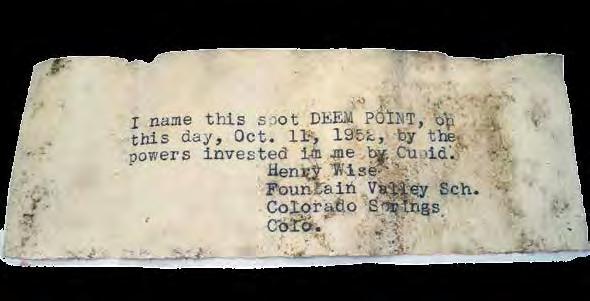 I name this spot DEEM POINT, on
this day, Oct. 11, 1952, by the
powers invested in me by Cupid.
Henry Wise
Fountain Valley Sch.
Colorado Springs
Colo.